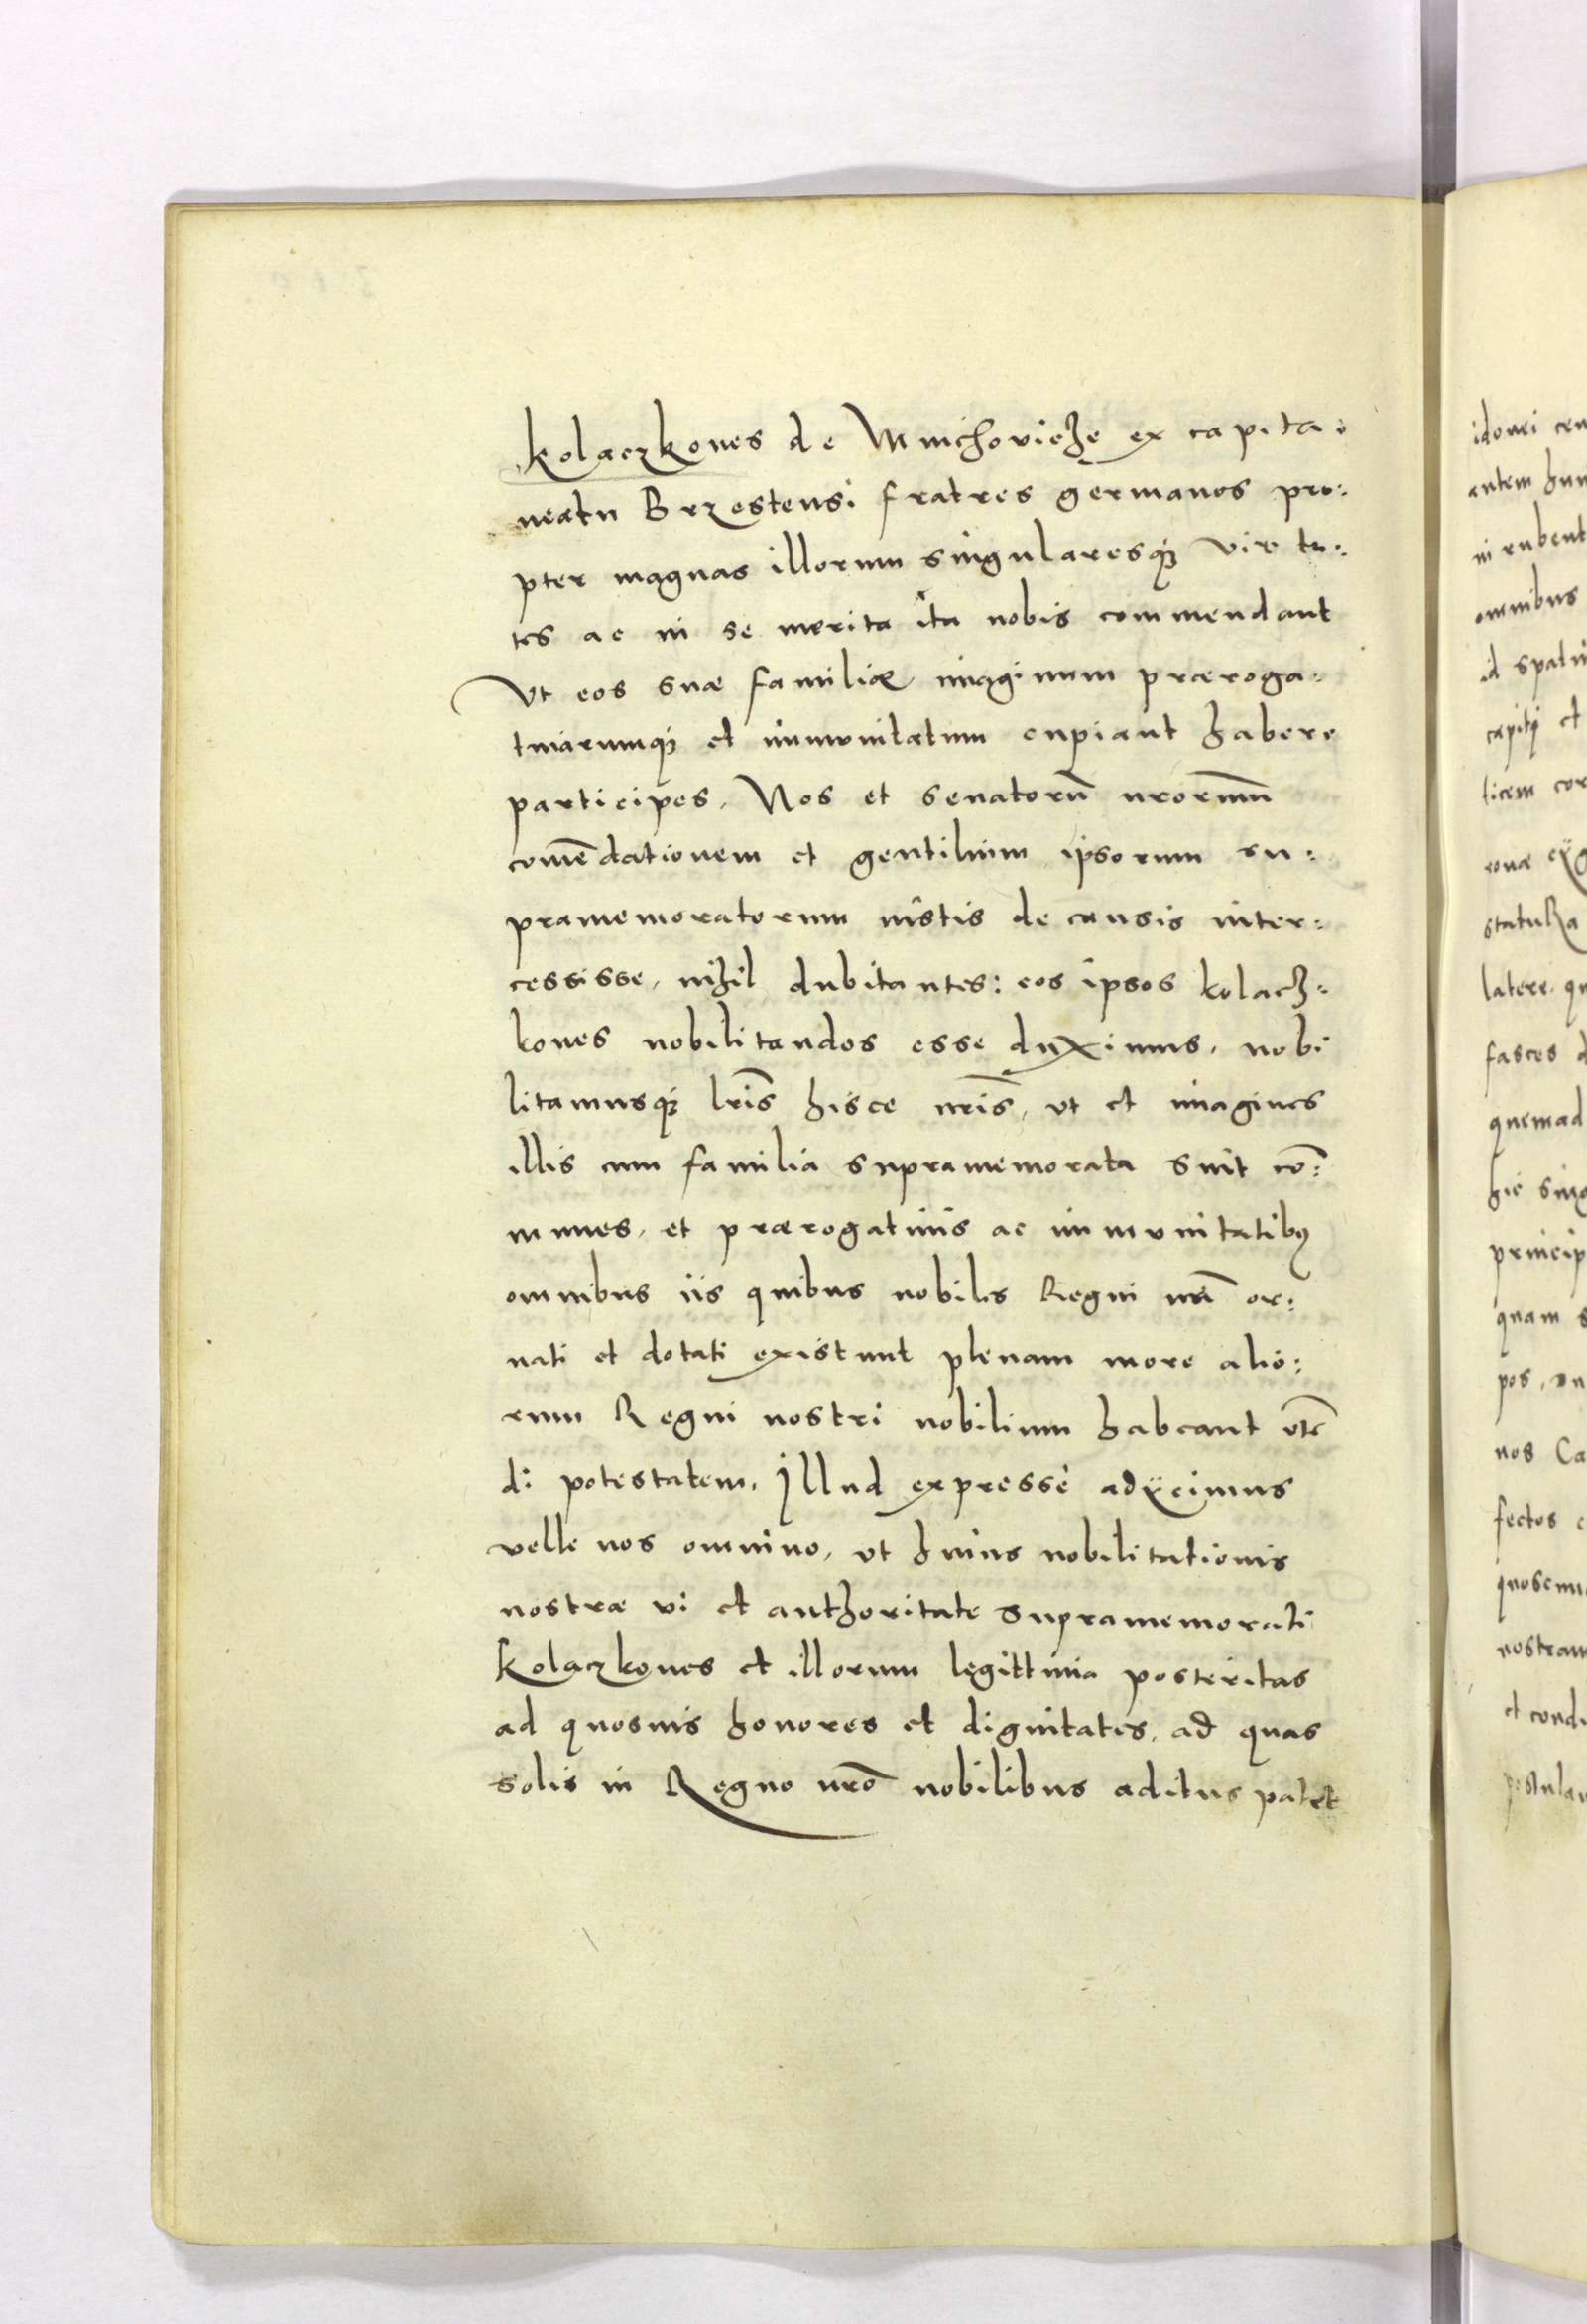 Kolaczkones de Mnichovicze ex capita:
neatu Brzestensi fratres germanos pro:
pter magnas illorum singularesq₃ virtu:
tes ac in se merita ita nobis commendant
Vt eos suæ familiæ imaginum præroga:
tiuarumq₃ et immunitatum cupiant habere
participes, Nos et senatorū nrorum̄
comēdationem et gentilium ipsorum su:
pramemoratorum iustis de causis inter:
cessisse, nihil dubitantes: eos ipsos kolacz:
kones nobilitandos esse duximus, nobi
litamusq₃ lrīs hisce nrīs, vt et imagines
illis cum familia supramemorata sint cō:
munes, et prærogatiuis ac immunitatibꝰ
omnibus iis quibus nobiles Regni nrī or:
nati et dotati existunt plenam more alio:
rum Regni nostri nobilium habeant vtē
di potestatem, Illud expressè adijcimus
velle nos omnino, vt huius nobilitationis
nostræ vi et authoritate supramemorati
Kolaczkones et illorum legittima posteritas
ad quosuis honores et dignitates, ad quas
solis in Regno nrō nobilibus aditus patet
idonei
antem
rubent
omnibus
id
capiti et
ticem
statuRa
latere
fasces
quemad
hic
princip
quam
pos,
nos Ca
fectos
nostram
et condi
postulan